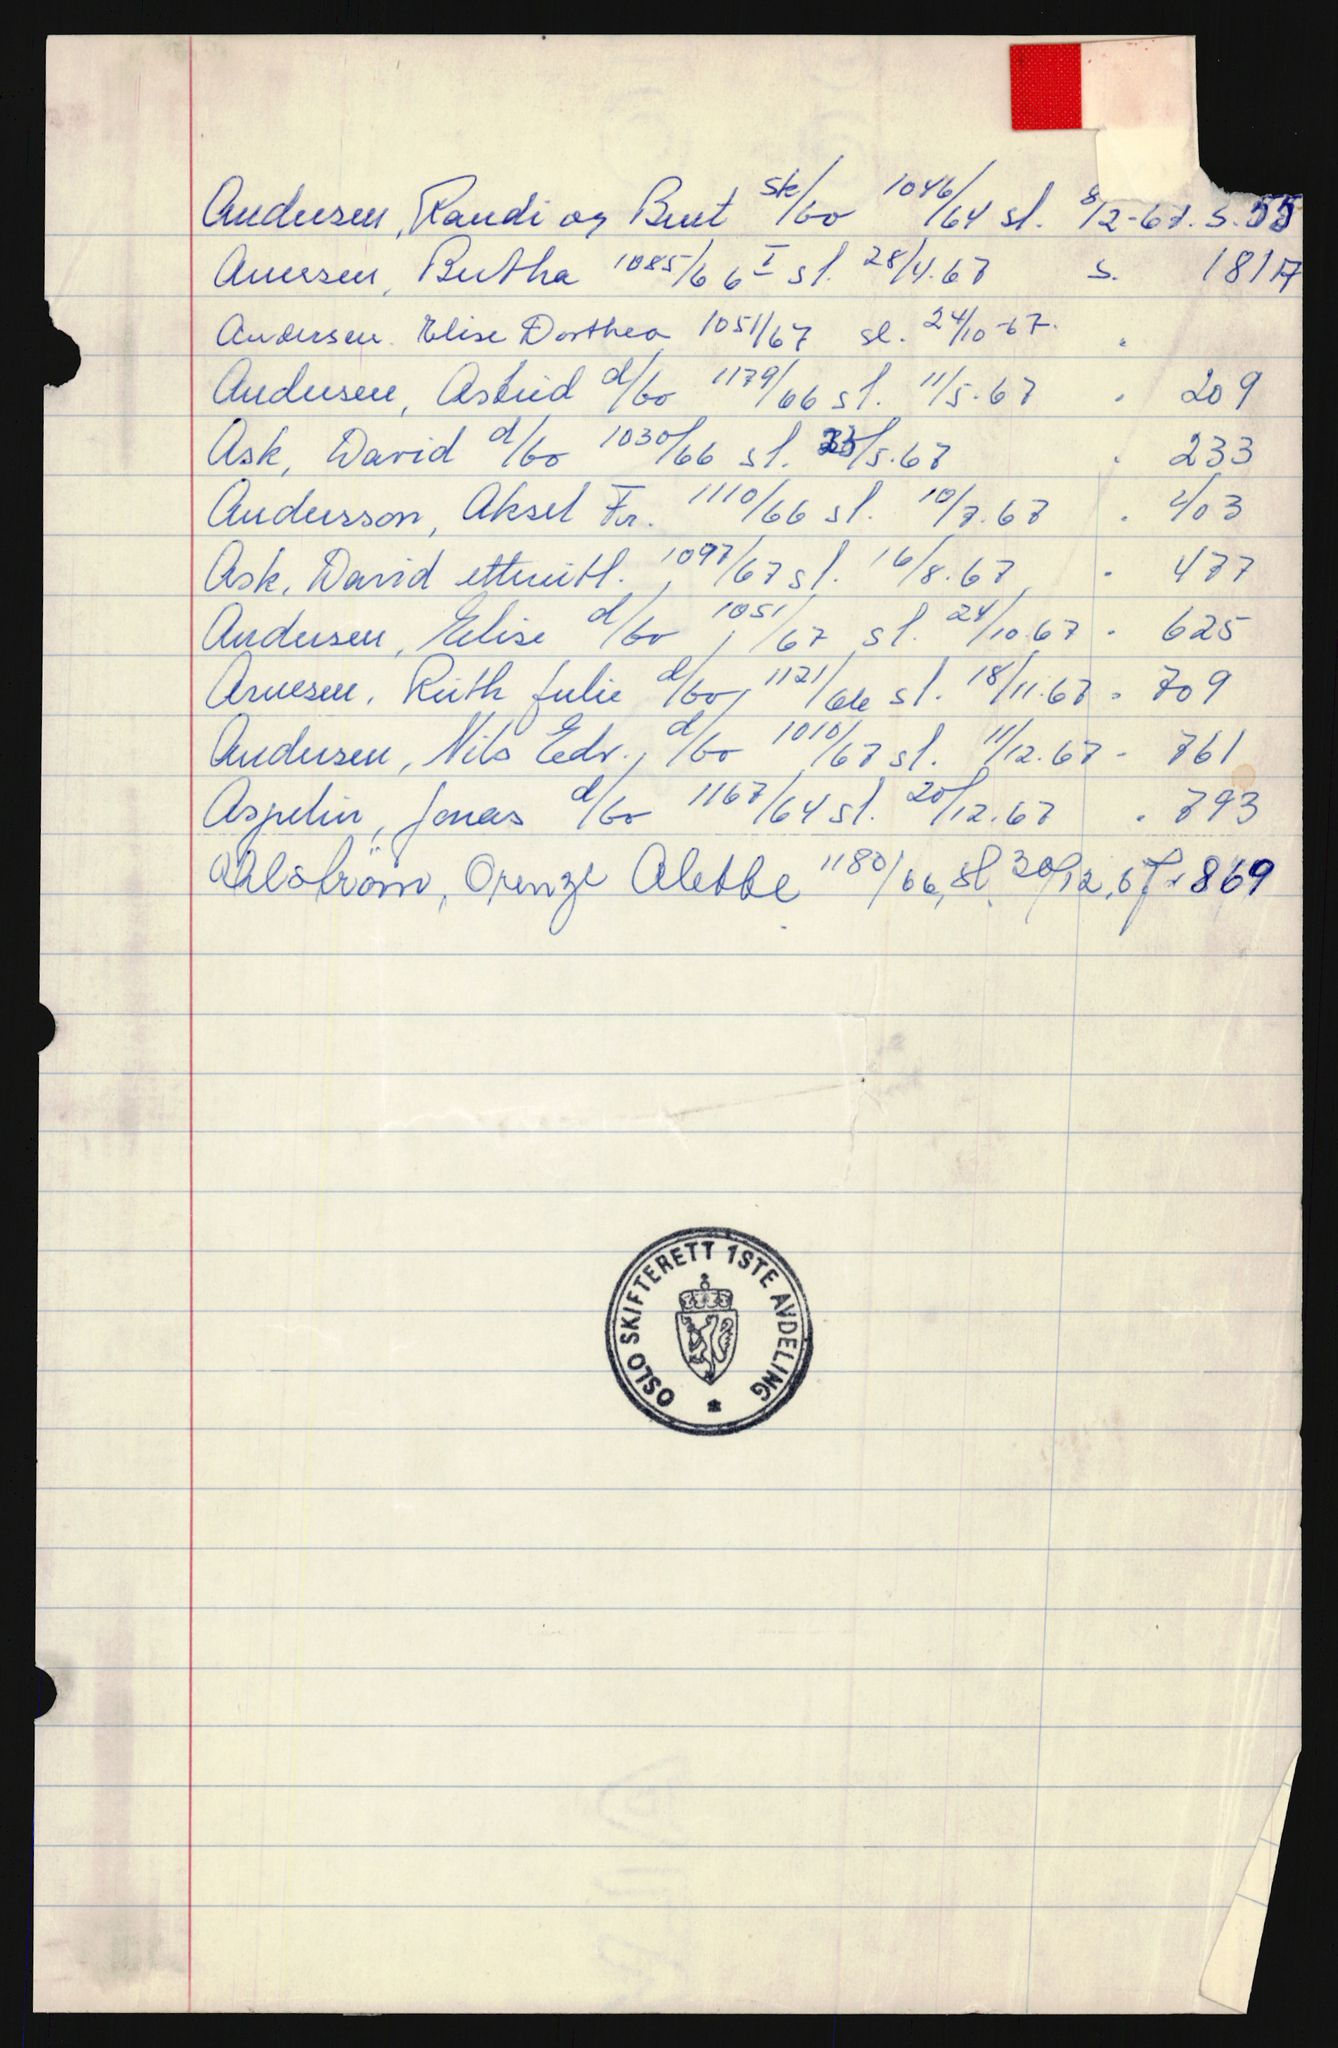 Andersen, Randi og Bent sk/bo 1046/64 sl. 8/2-67. s. 55
Arnesen, Bertha 1085/66 I sl. 28/4.67 s. 181A
Andersen. Elise Dorthea 1051/67 sl. 24/10-67. "
Andersen, Astrid d/bo 1179/66 sl. 11/5.67 " 209
Ask, David d/bo 1030/66 sl. /5.67 " 233
Andersson, Aksel Fr. 1110/66 sl. 10/7.67 " 403
Ask, David ettermitl. 1097/67 sl. 16/8.67 " 477
Andersen, Elise d/bo, 1051/67 sl. 24/10.67 " 625
Arnesen, Ruth Julie d/bo, 1121/66 sl. 18/11.67 " 709
Andersen, Nils Edv., d/bo 1010/67 sl. 11/12.67 " 761
Aspelin, Jonas d/bo 1167/64 sl. 20/12.67 " 793
Ahlström, Orenze Alette 1180/66, sl. 30/12.67 " 869
OSLO SKIFTERETT 1STE AVDELING *